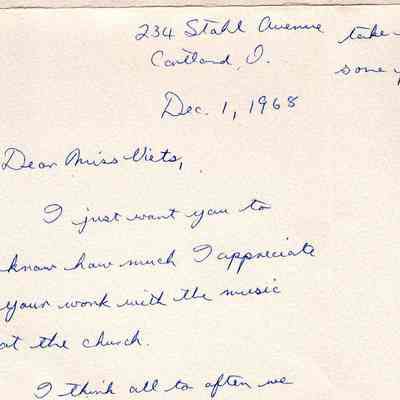 234 Stahl Avenue
Cortland, O.
Dec. 1, 1968
Dear Miss Viets,
I just want you to
know how much I appreciate
your work with the music
at the church.
I think all to often we
take
some